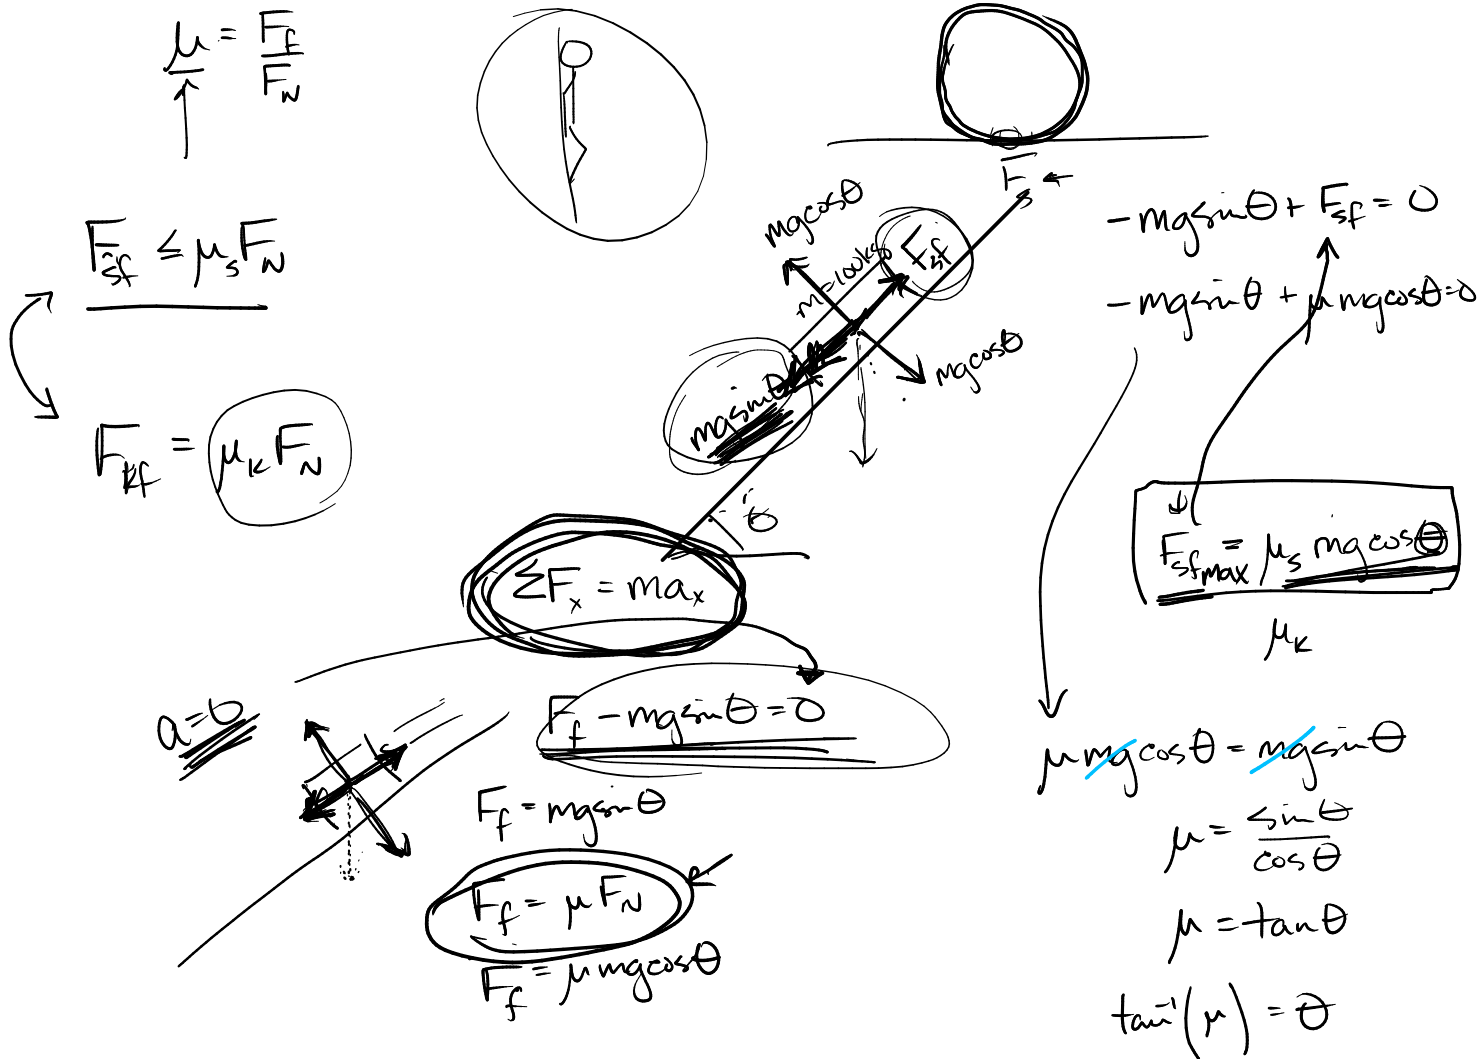 μ = F_f / F_N
F_sf ≤ μ_s F_N
F_kf = μ_k F_N
mgcosθ
m=100kg
F_sf
F
mgcosθ
mgsinθ
θ
ΣF_x = ma_x
a=0
F_f - mgsinθ = 0
F_f = mgsinθ
F_f = μF_N
F_f = μmgcosθ
-mgsinθ + F_sf = 0
-mgsinθ + μmgcosθ=0
F_sfmax = μ_s mgcosθ
μ_k
μmgcosθ = mgsinθ
μ = sinθ / cosθ
μ = tanθ
tan⁻¹(μ) = θ